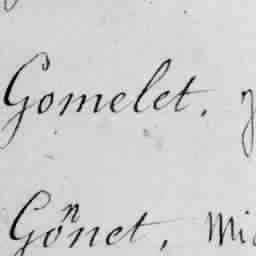 Gomelet,
Gonnet, Mi